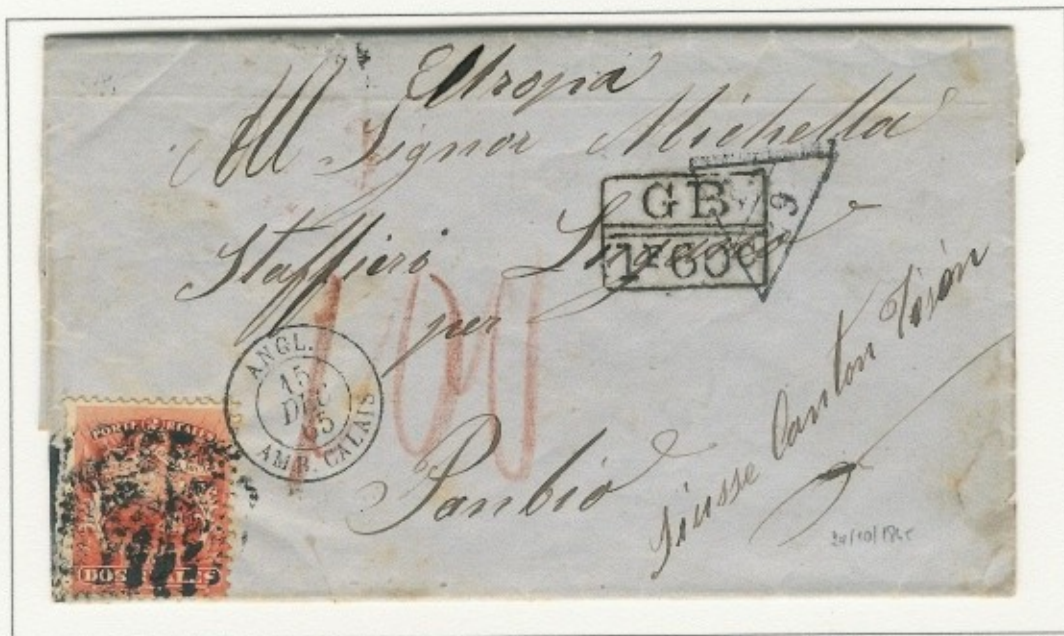 Europa
All Signor Michella
Staffieri Lugano
per
Sanbio
Suisse Canton Tisin
GB
1F 60C
ANGL.
15
DEC
65
AMB. CALAIS
100
DOS REALES
24/10/186